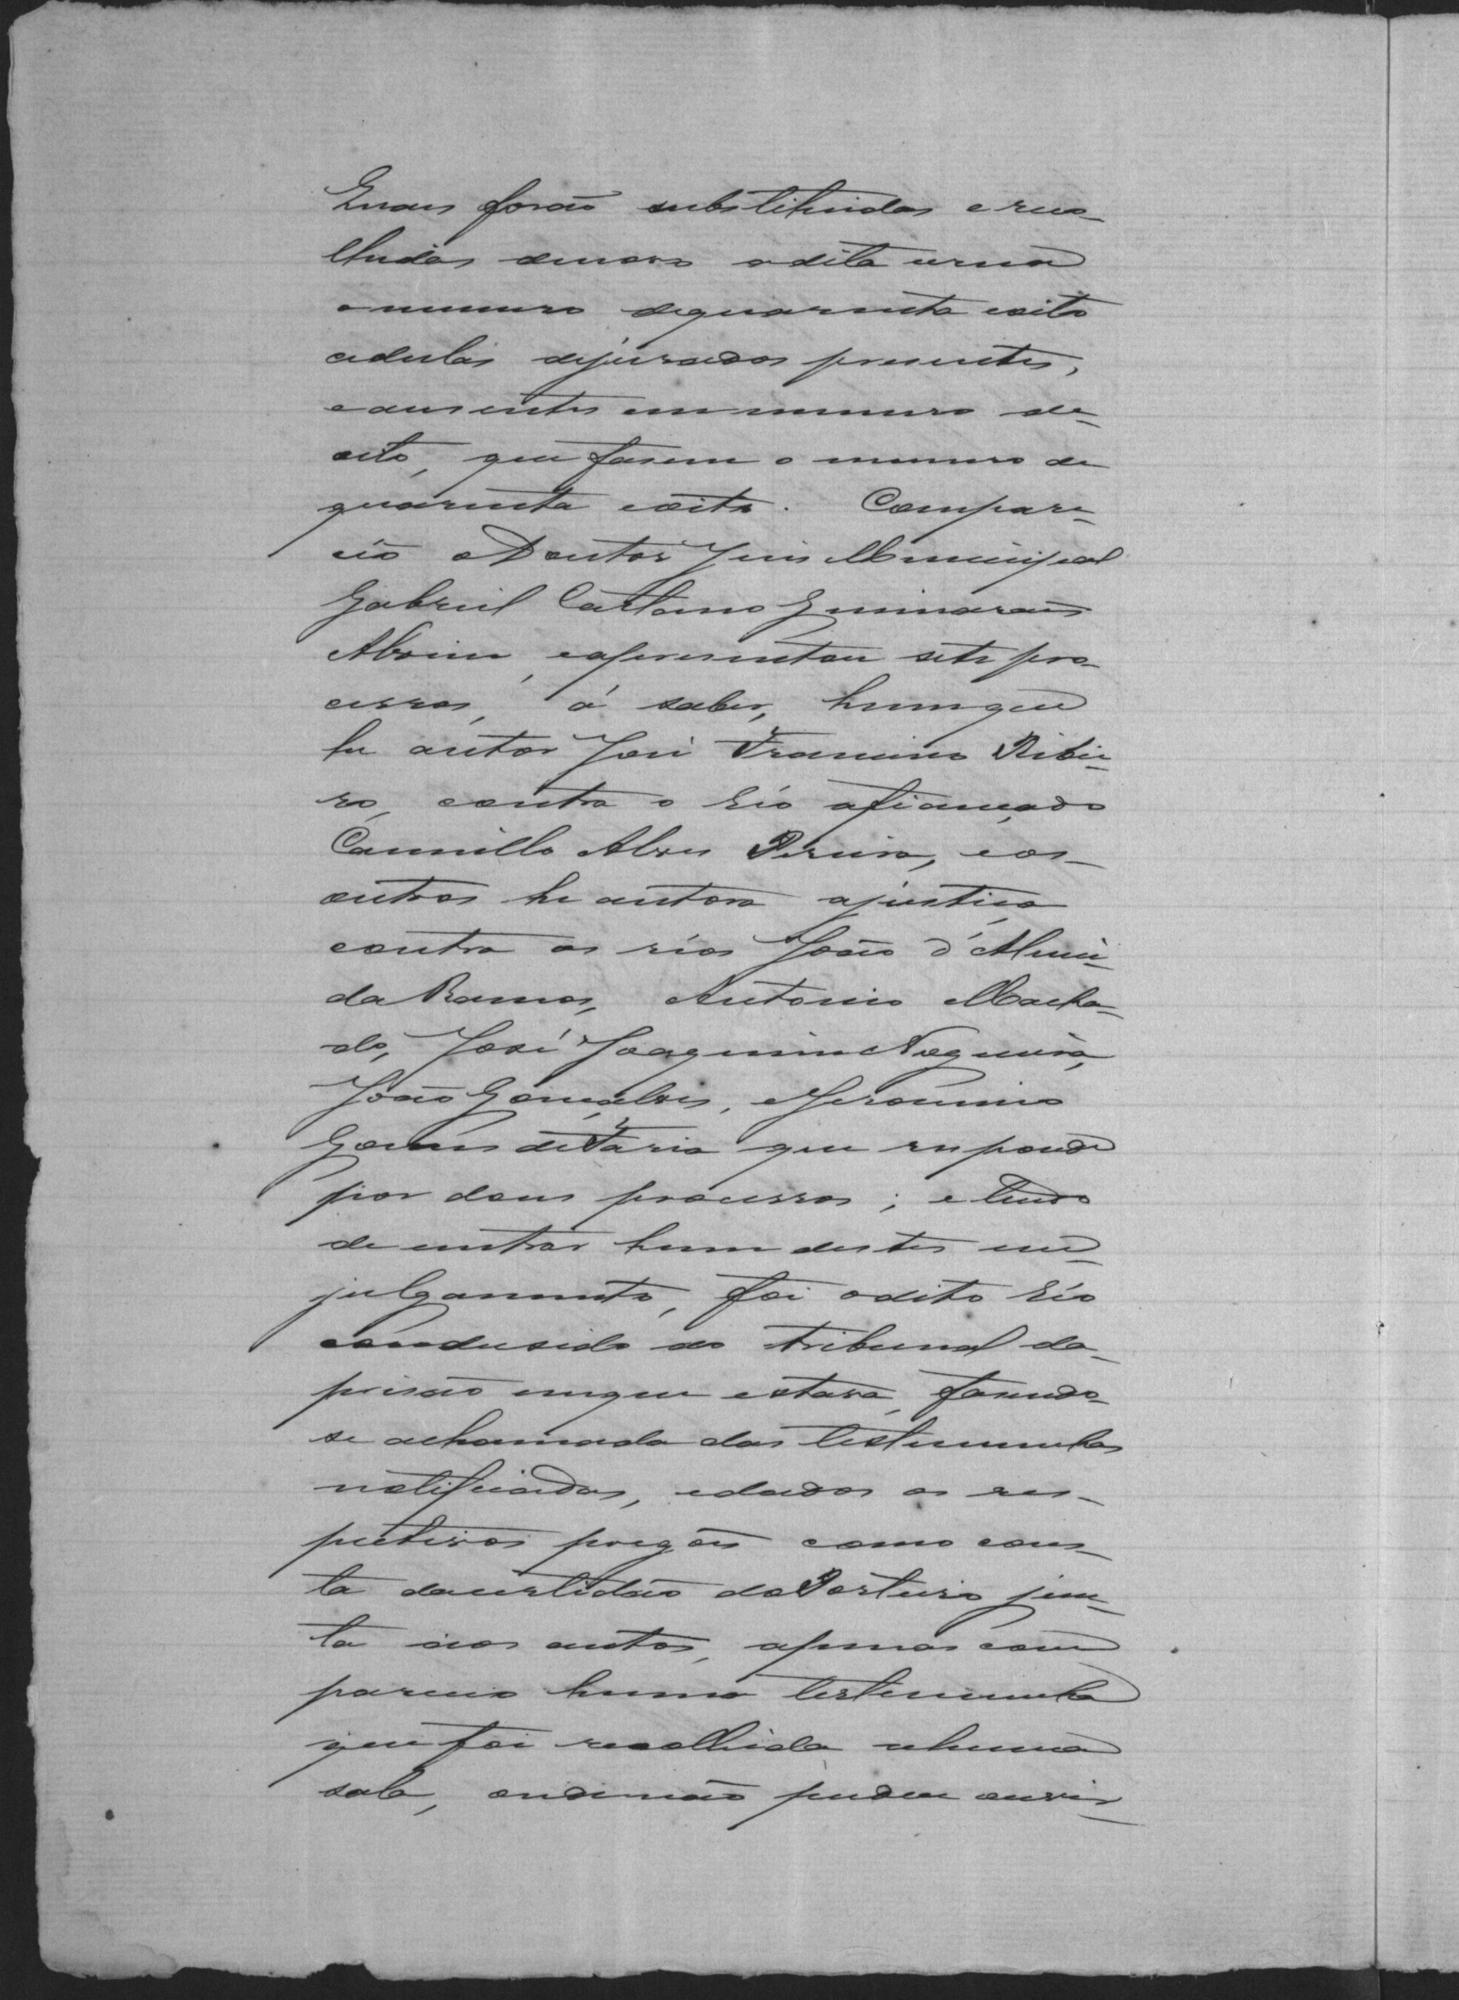 Quais forão substituidas e reco-
lhidas denovo adita urna
o numero dequarenta eoito
cedulas dejurados presentes,
eausentes em numero de-
oito, que fasem o numero de
quarenta eoito. Compare-
ceo o Doutor Juis Municipal
Gabriel Caetano Guimaraens
Alvim, eapresentou sete pro-
cessos, á saber, humque
he autor José Francisco Ribei-
ro, contra o Réo afiançado
Camillo Alves Pereira, eos-
outros he autora ajustiça
contra os réos João d'Almei-
da Ramos, Antonio Macha-
do, José Joaquim Nogueira,
João Gonçalves, eJeronimo
Gomes deFaria que responde
por dous processos; e tendo
de entrar hum destes em-
julgamento, foi odito Réo
condusido ao tribunal da-
prisão emque estava, fasendo-
se achamada das testemunhas
notificadas, edados os res-
pectivos pregões como cons-
ta dacertidão doPorteiro jun-
ta aos autos, apenas com
pareceo huma testemunha
que foi recolhida ahuma
sala, ondenão podia ouvir